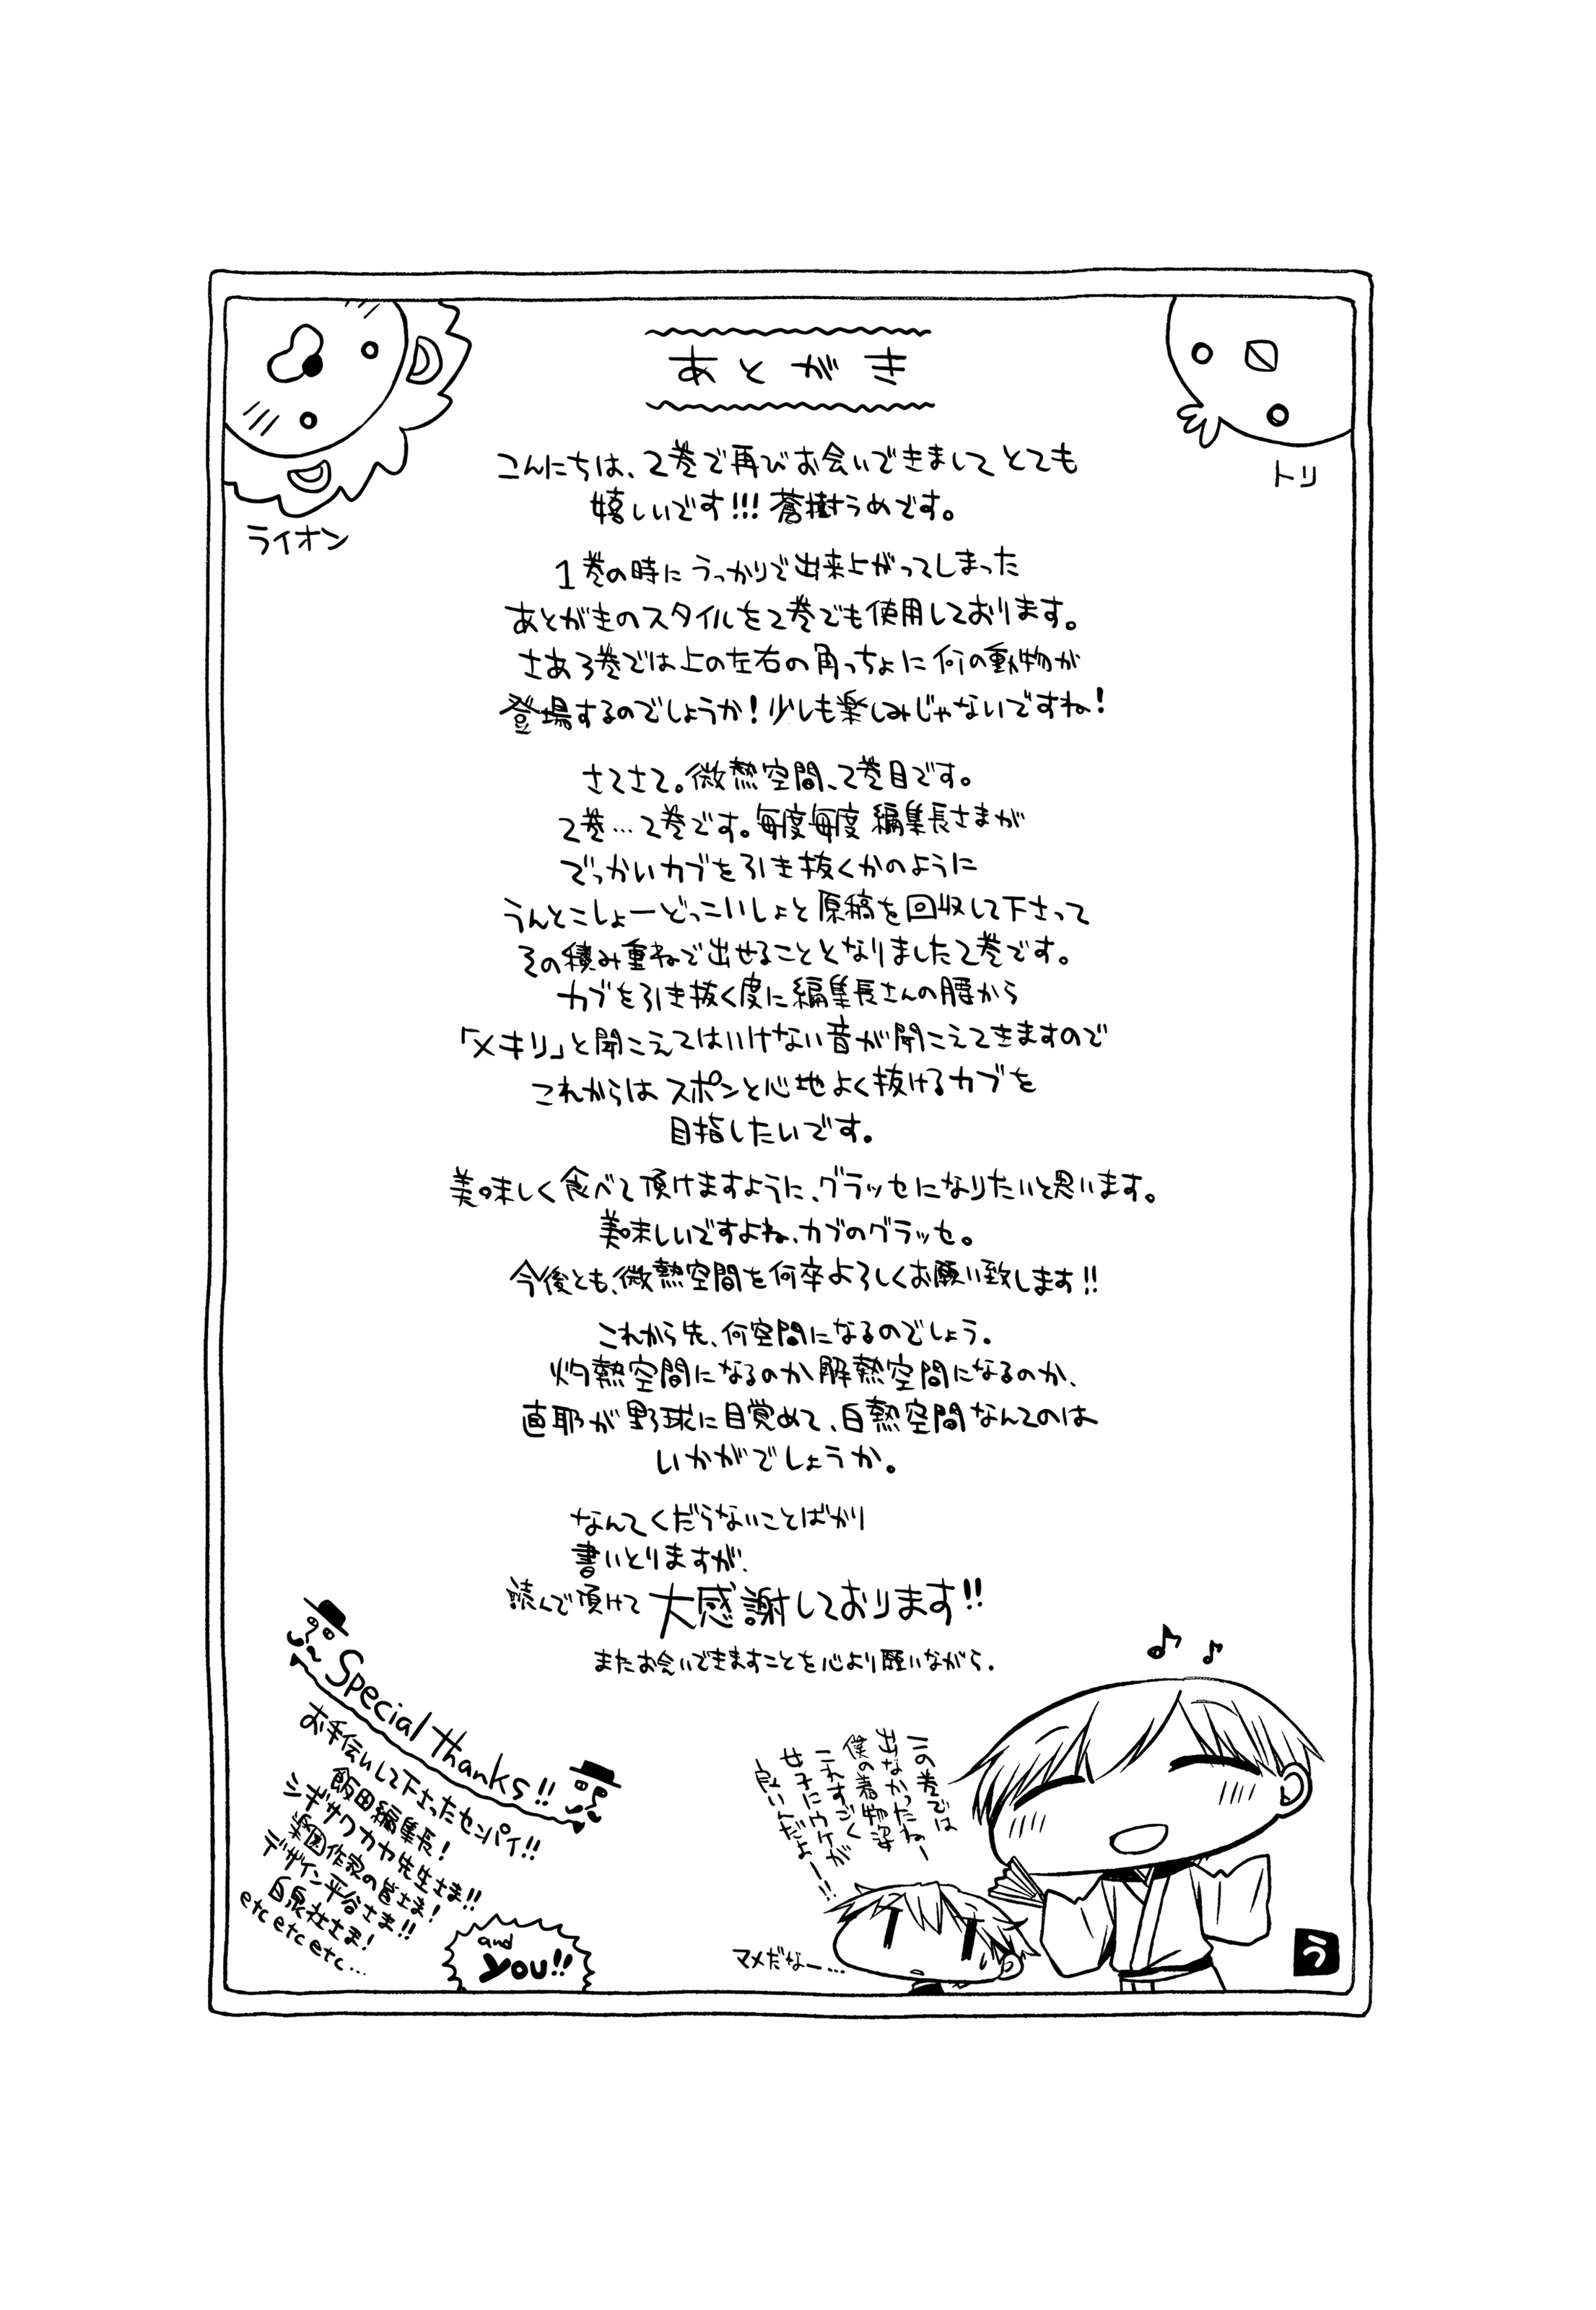 あとがき
ライオン
トリ
こんにちは、2巻で再びお会いできましてとても
嬉しいです!!!蒼樹うめです。
1巻の時にうっかりで出来上がってしまった
あとがきのスタイルを2巻でも使用しております。
さあ3巻では上の左右の角っちょに何の動物が
登場するのでしょうか!少しも楽しみじゃないですね!
さてさて。微熱空間、2巻目です。
2巻…2巻です。毎度毎度編集長さまが
でっかいカブを引き抜くかのように
うんとこしょーどっこいしょと原稿を回収して下さって
その積み重ねで出せることとなりました2巻です。
カブを引き抜く度に編集長さんの腰から
「メキリ」と聞こえてはいけない音が聞こえてきますので
これからはスポンと心地よく抜けるカブを
目指したいです。
美味しく食べて頂けますように、グラッセになりたいと思います。
美味しいですよね、カブのグラッセ。
今後とも、微熱空間を何卒よろしくお願い致します!!
これから先、何空間になるのでしょう。
灼熱空間になるのか解熱空間になるのか、
直耶が野球に目覚めて、白熱空間なんてのは
いかがでしょうか。
なんてくだらないことばかり
書いとりますが、
読んで頂けて大感謝しております!!
またお会いできますことを心より願いながら。
Special thanks!!
お手伝いして下さったセンパイ!!
飯田編集長!
シギサワカヤ先生さま!!
楽園作家の皆さま!
デザイン平谷さま!!
白泉社さま!
etc etc etc…
and
you!!
この巻では
出なかったねー
僕の着物姿
これすごく
女子にウケが
良いんだよー!!
マメだなー…
う